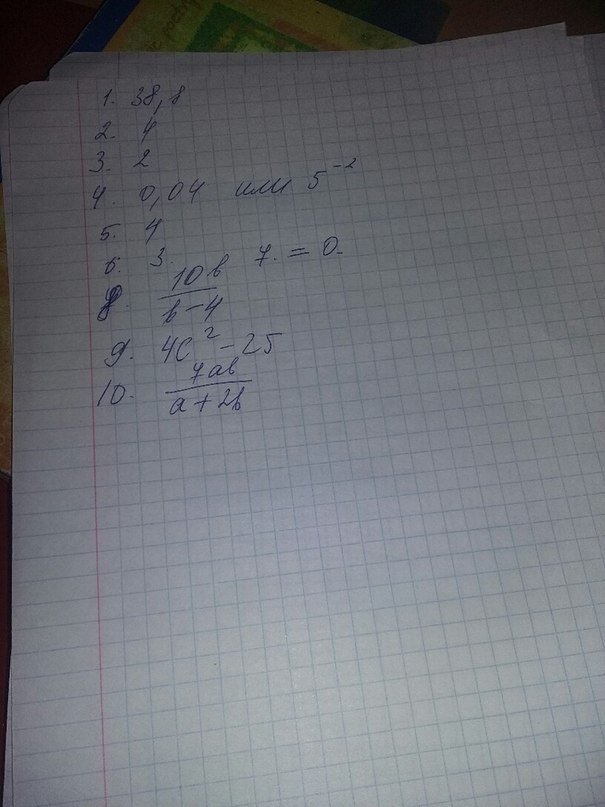 1. 38,8
2. 4
3. 2
4. 0,04 или 5⁻²
5. 4
6. 3. 7. = 0.
8. 10b / b-4
9. 4c² - 25
10. 7ab / a+2b